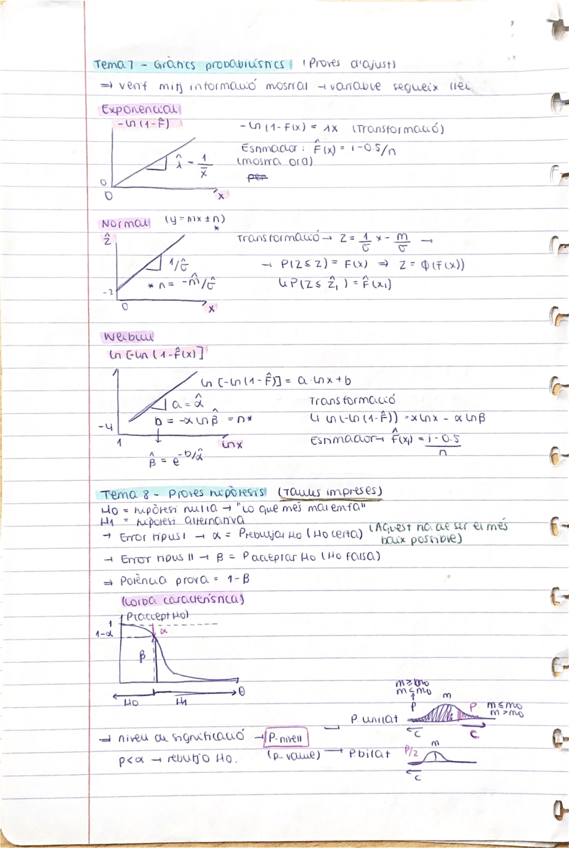 Tema 7 - Gràfics probabilístics (Proves d'ajust)
⇒ vent mitj informació mostral → variable segueix llei
Exponencial
-ln(1-F̂)
-ln(1-F(x)) = λx (Transformació)
λ̂ = 1/x̄
Estimador: F̂(x) = i-0.5/n
(mostra ord)
0
0
x
Normal (y=mx±n)
*
ẑ
Transformació → Z = 1/σ x - m/σ →
1/σ̂
→ P(Z≤z) = F(x) ⇒ Z = Φ(F(x))
* n = -m̂/σ̂
↳ P(Z≤ẑ₁) = F̂(x₁)
0
x
Weibull
ln[-ln(1-F̂(x)]
1
ln[-ln(1-F̂)] = a·lnx+b
a = α̂
Transformació
b = -α ln β̂ = n*
↳ ln(-ln(1-F̂)) = αlnx - αlnβ
-4
1
lnx
Estimador → F̂(x) = i-0.5/n
β̂ = e^-b/α̂
Tema 8 - Proves hipòtesis (Taules impreses)
H0 = hipòtesi nul·la → "Lo que més mal em fa"
H1 = hipòtesi alternativa
→ Error tipus I → α = P rebutjar H0 (H0 certa) (Aquest ha de ser el més
baix possible)
→ Error tipus II → β = P acceptar H0 (H0 falsa)
⇒ Potència prova = 1-β
(corba característica)
P(accept H0)
1
1-α
α
β
θ
H0
H1
m≥m0
m≤m0
m
P
P
m≤m0
m>m0
P unilat
C
C
→ nivell de significació → P-nivell
p<α → rebutjo H0.
(p-value)
→ P bilat
P/2
m
C